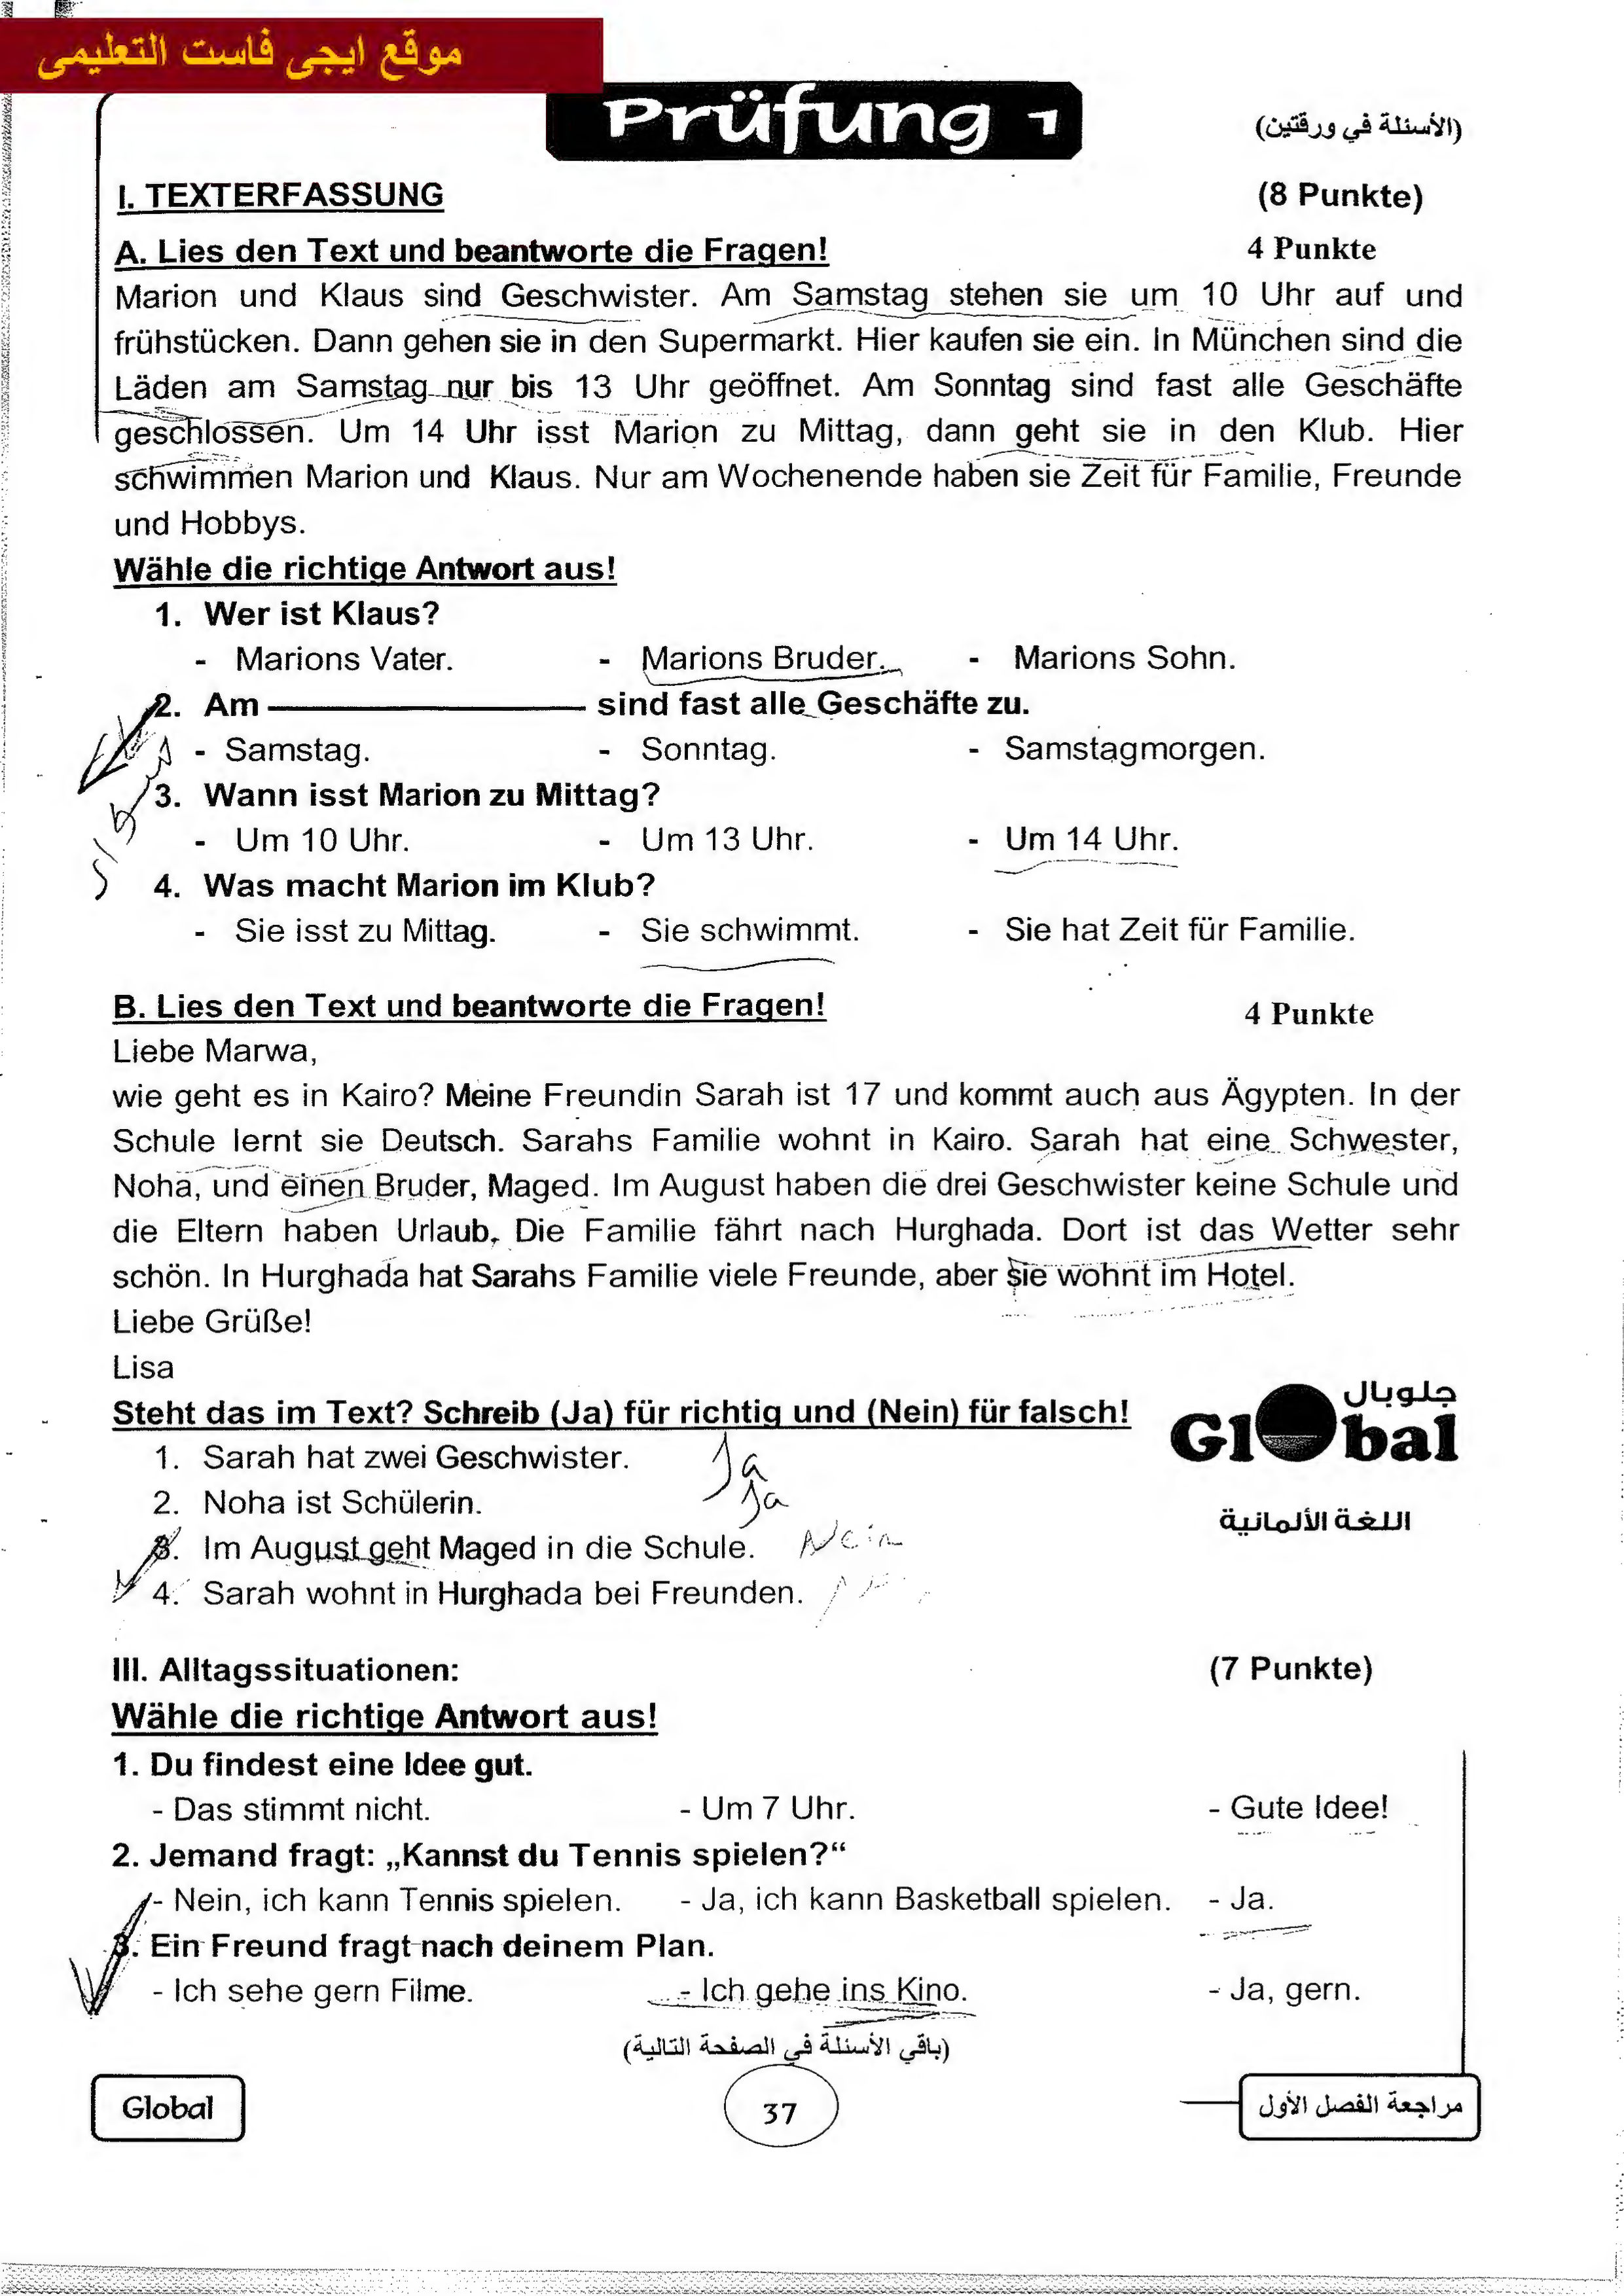 موقع ايجى فاست التعليمى
Prüfung 1
(الأسئلة في ورقتين)
I. TEXTERFASSUNG (8 Punkte)
A. Lies den Text und beantworte die Fragen! 4 Punkte
Marion und Klaus sind Geschwister. Am Samstag stehen sie um 10 Uhr auf und
frühstücken. Dann gehen sie in den Supermarkt. Hier kaufen sie ein. In München sind die
Läden am Samstag nur bis 13 Uhr geöffnet. Am Sonntag sind fast alle Geschäfte
geschlossen. Um 14 Uhr isst Marion zu Mittag, dann geht sie in den Klub. Hier
schwimmen Marion und Klaus. Nur am Wochenende haben sie Zeit für Familie, Freunde
und Hobbys.
Wähle die richtige Antwort aus!
1. Wer ist Klaus?
- Marions Vater. - Marions Bruder. - Marions Sohn.
2. Am ――――――― sind fast alle Geschäfte zu.
- Samstag. - Sonntag. - Samstagmorgen.
3. Wann isst Marion zu Mittag?
- Um 10 Uhr. - Um 13 Uhr. - Um 14 Uhr.
4. Was macht Marion im Klub?
- Sie isst zu Mittag. - Sie schwimmt. - Sie hat Zeit für Familie.
B. Lies den Text und beantworte die Fragen! 4 Punkte
Liebe Marwa,
wie geht es in Kairo? Meine Freundin Sarah ist 17 und kommt auch aus Ägypten. In der
Schule lernt sie Deutsch. Sarahs Familie wohnt in Kairo. Sarah hat eine Schwester,
Noha, und einen Bruder, Maged. Im August haben die drei Geschwister keine Schule und
die Eltern haben Urlaub. Die Familie fährt nach Hurghada. Dort ist das Wetter sehr
schön. In Hurghada hat Sarahs Familie viele Freunde, aber sie wohnt im Hotel.
Liebe Grüße!
Lisa
Steht das im Text? Schreib (Ja) für richtig und (Nein) für falsch!
جلوبال
Global
اللغة الألمانية
1. Sarah hat zwei Geschwister. Ja
2. Noha ist Schülerin. Ja
3. Im August geht Maged in die Schule. Nein
4. Sarah wohnt in Hurghada bei Freunden.
III. Alltagssituationen: (7 Punkte)
Wähle die richtige Antwort aus!
1. Du findest eine Idee gut.
- Das stimmt nicht. - Um 7 Uhr. - Gute Idee!
2. Jemand fragt: „Kannst du Tennis spielen?“
- Nein, ich kann Tennis spielen. - Ja, ich kann Basketball spielen. - Ja.
3. Ein Freund fragt nach deinem Plan.
- Ich sehe gern Filme. - Ich gehe ins Kino. - Ja, gern.
(باقي الأسئلة في الصفحة التالية)
Global 37 مراجعة الفصل الأول